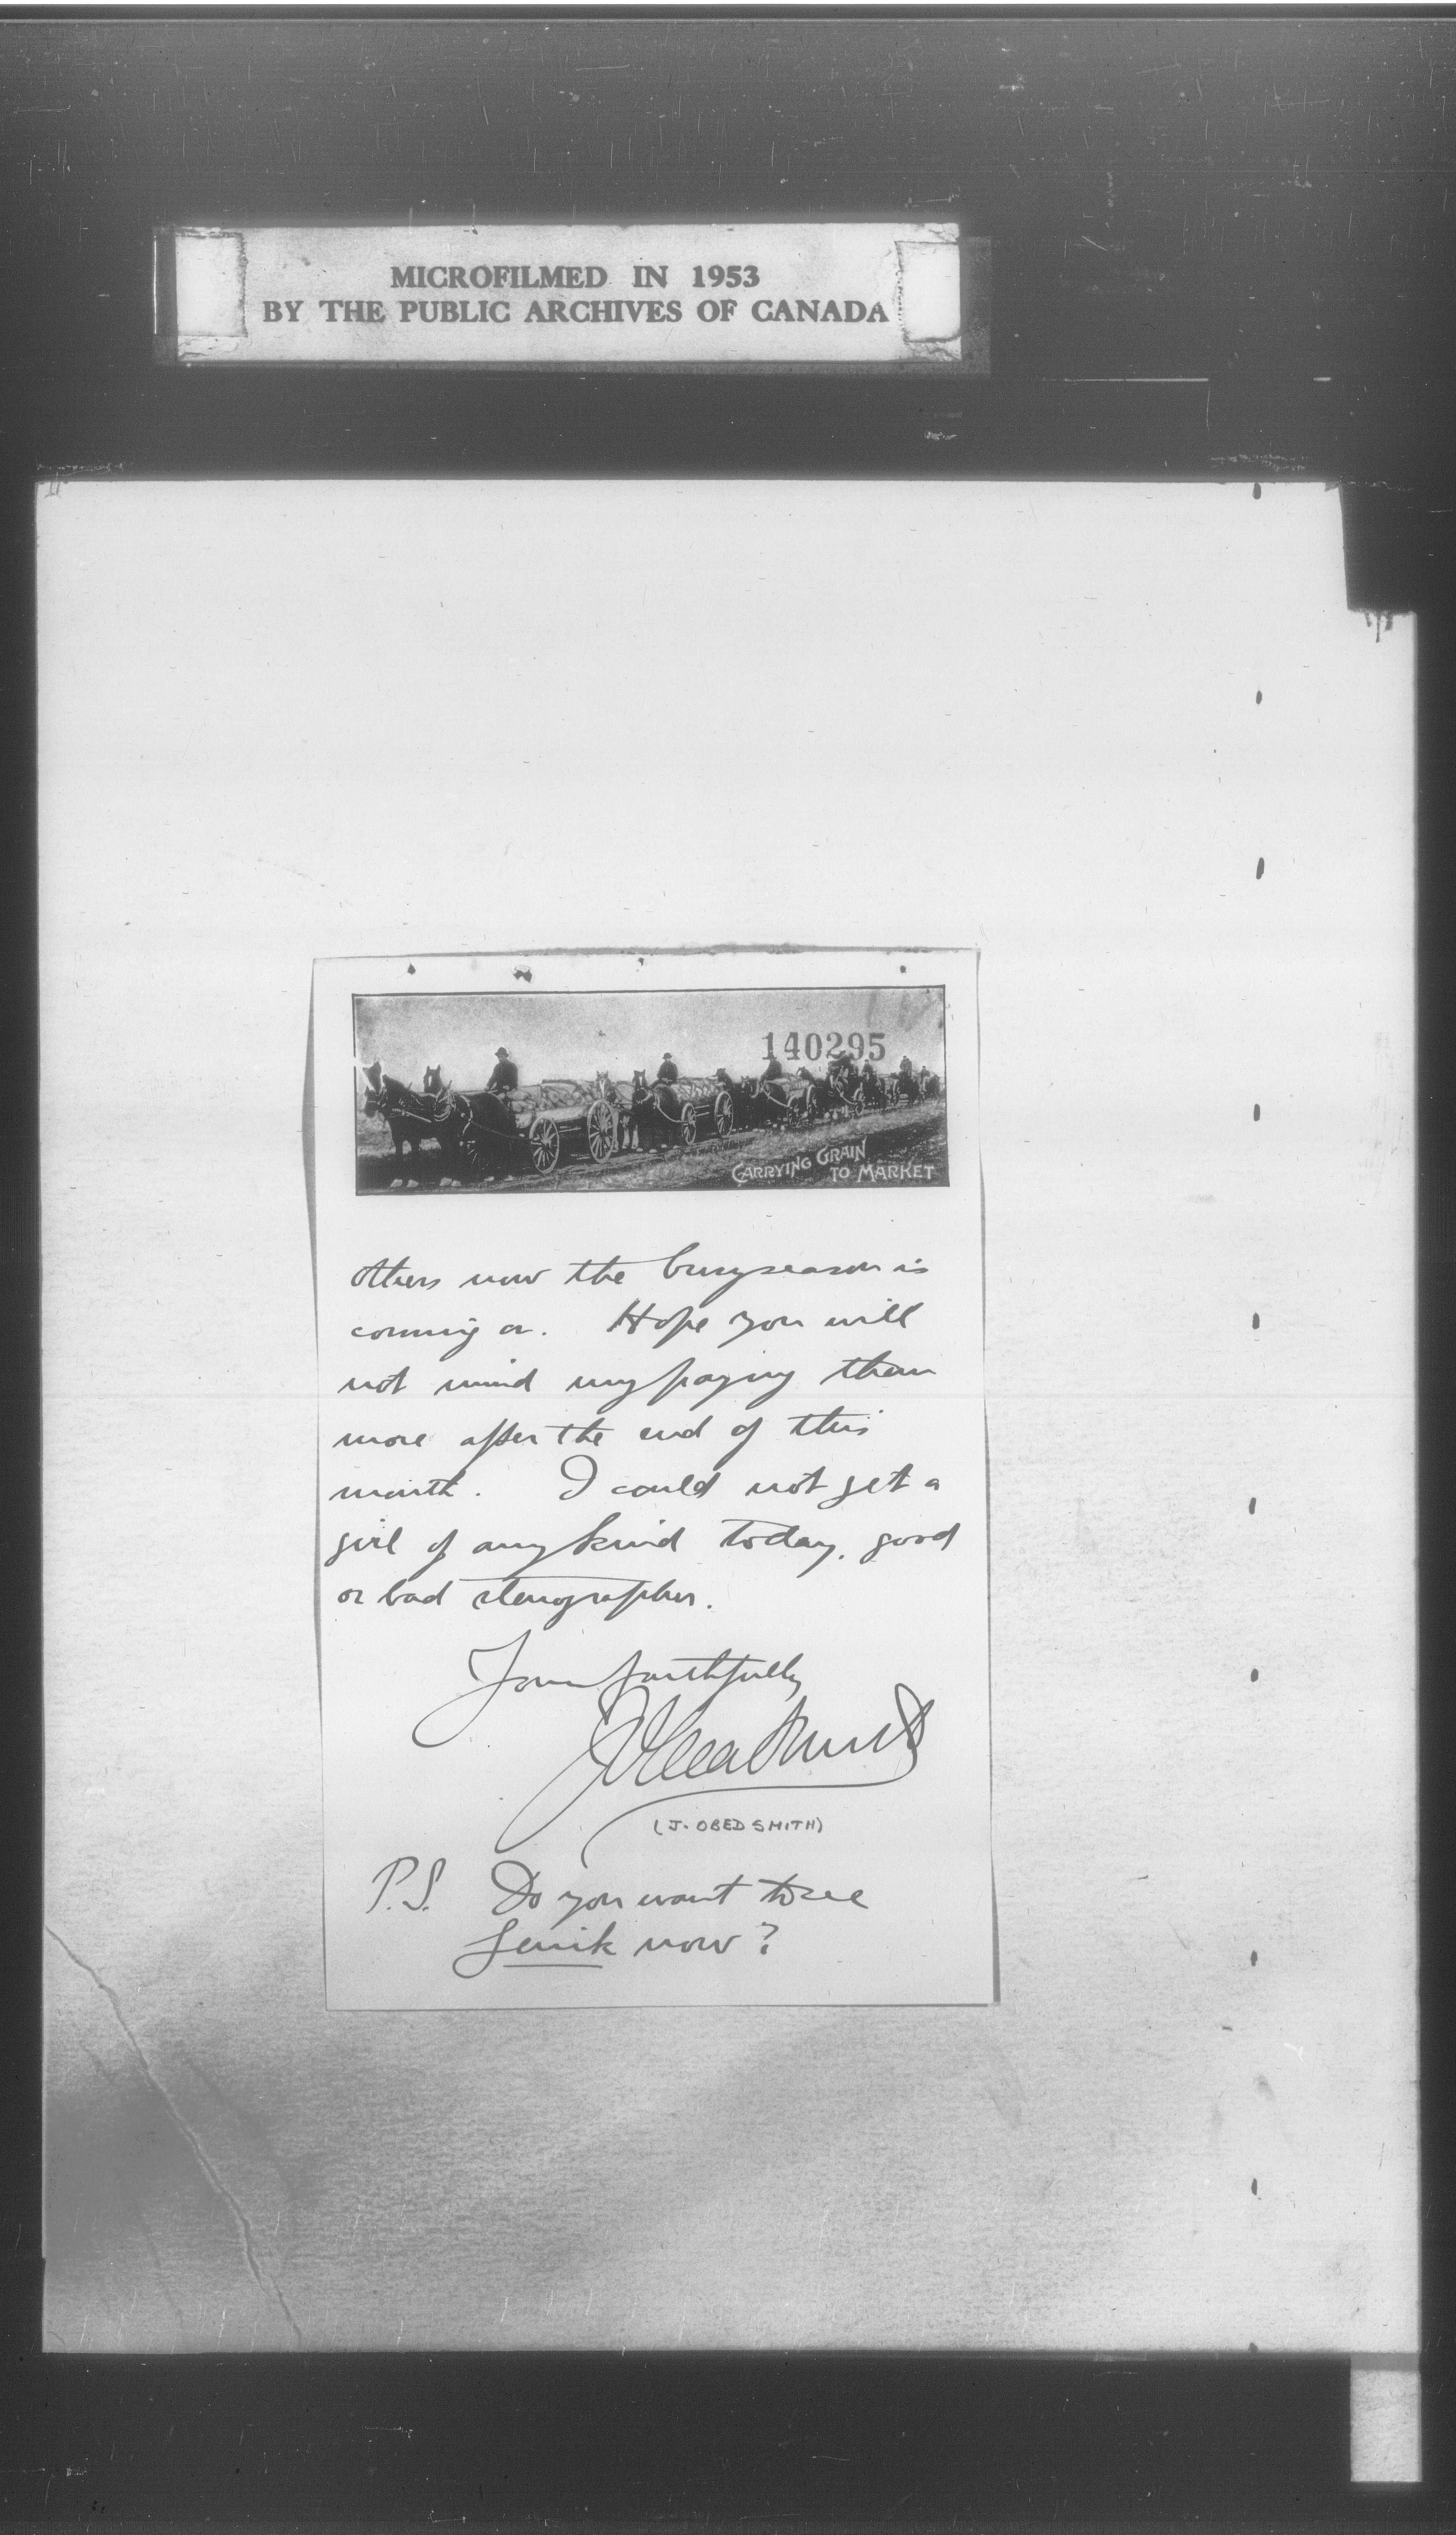 MICROFILMED IN 1953
BY THE PUBLIC ARCHIVES OF CANADA
140295
CARRYING GRAIN
TO MARKET
others now the busy season is
coming on. Hope you will
not mind my paying them
more after the end of this
month. I could not get a
girl of any kind today, good
or bad stenographer.
Yours faithfully
J Obed Smith
(J. OBED SMITH)
P.S. Do you want to see
Genik now?